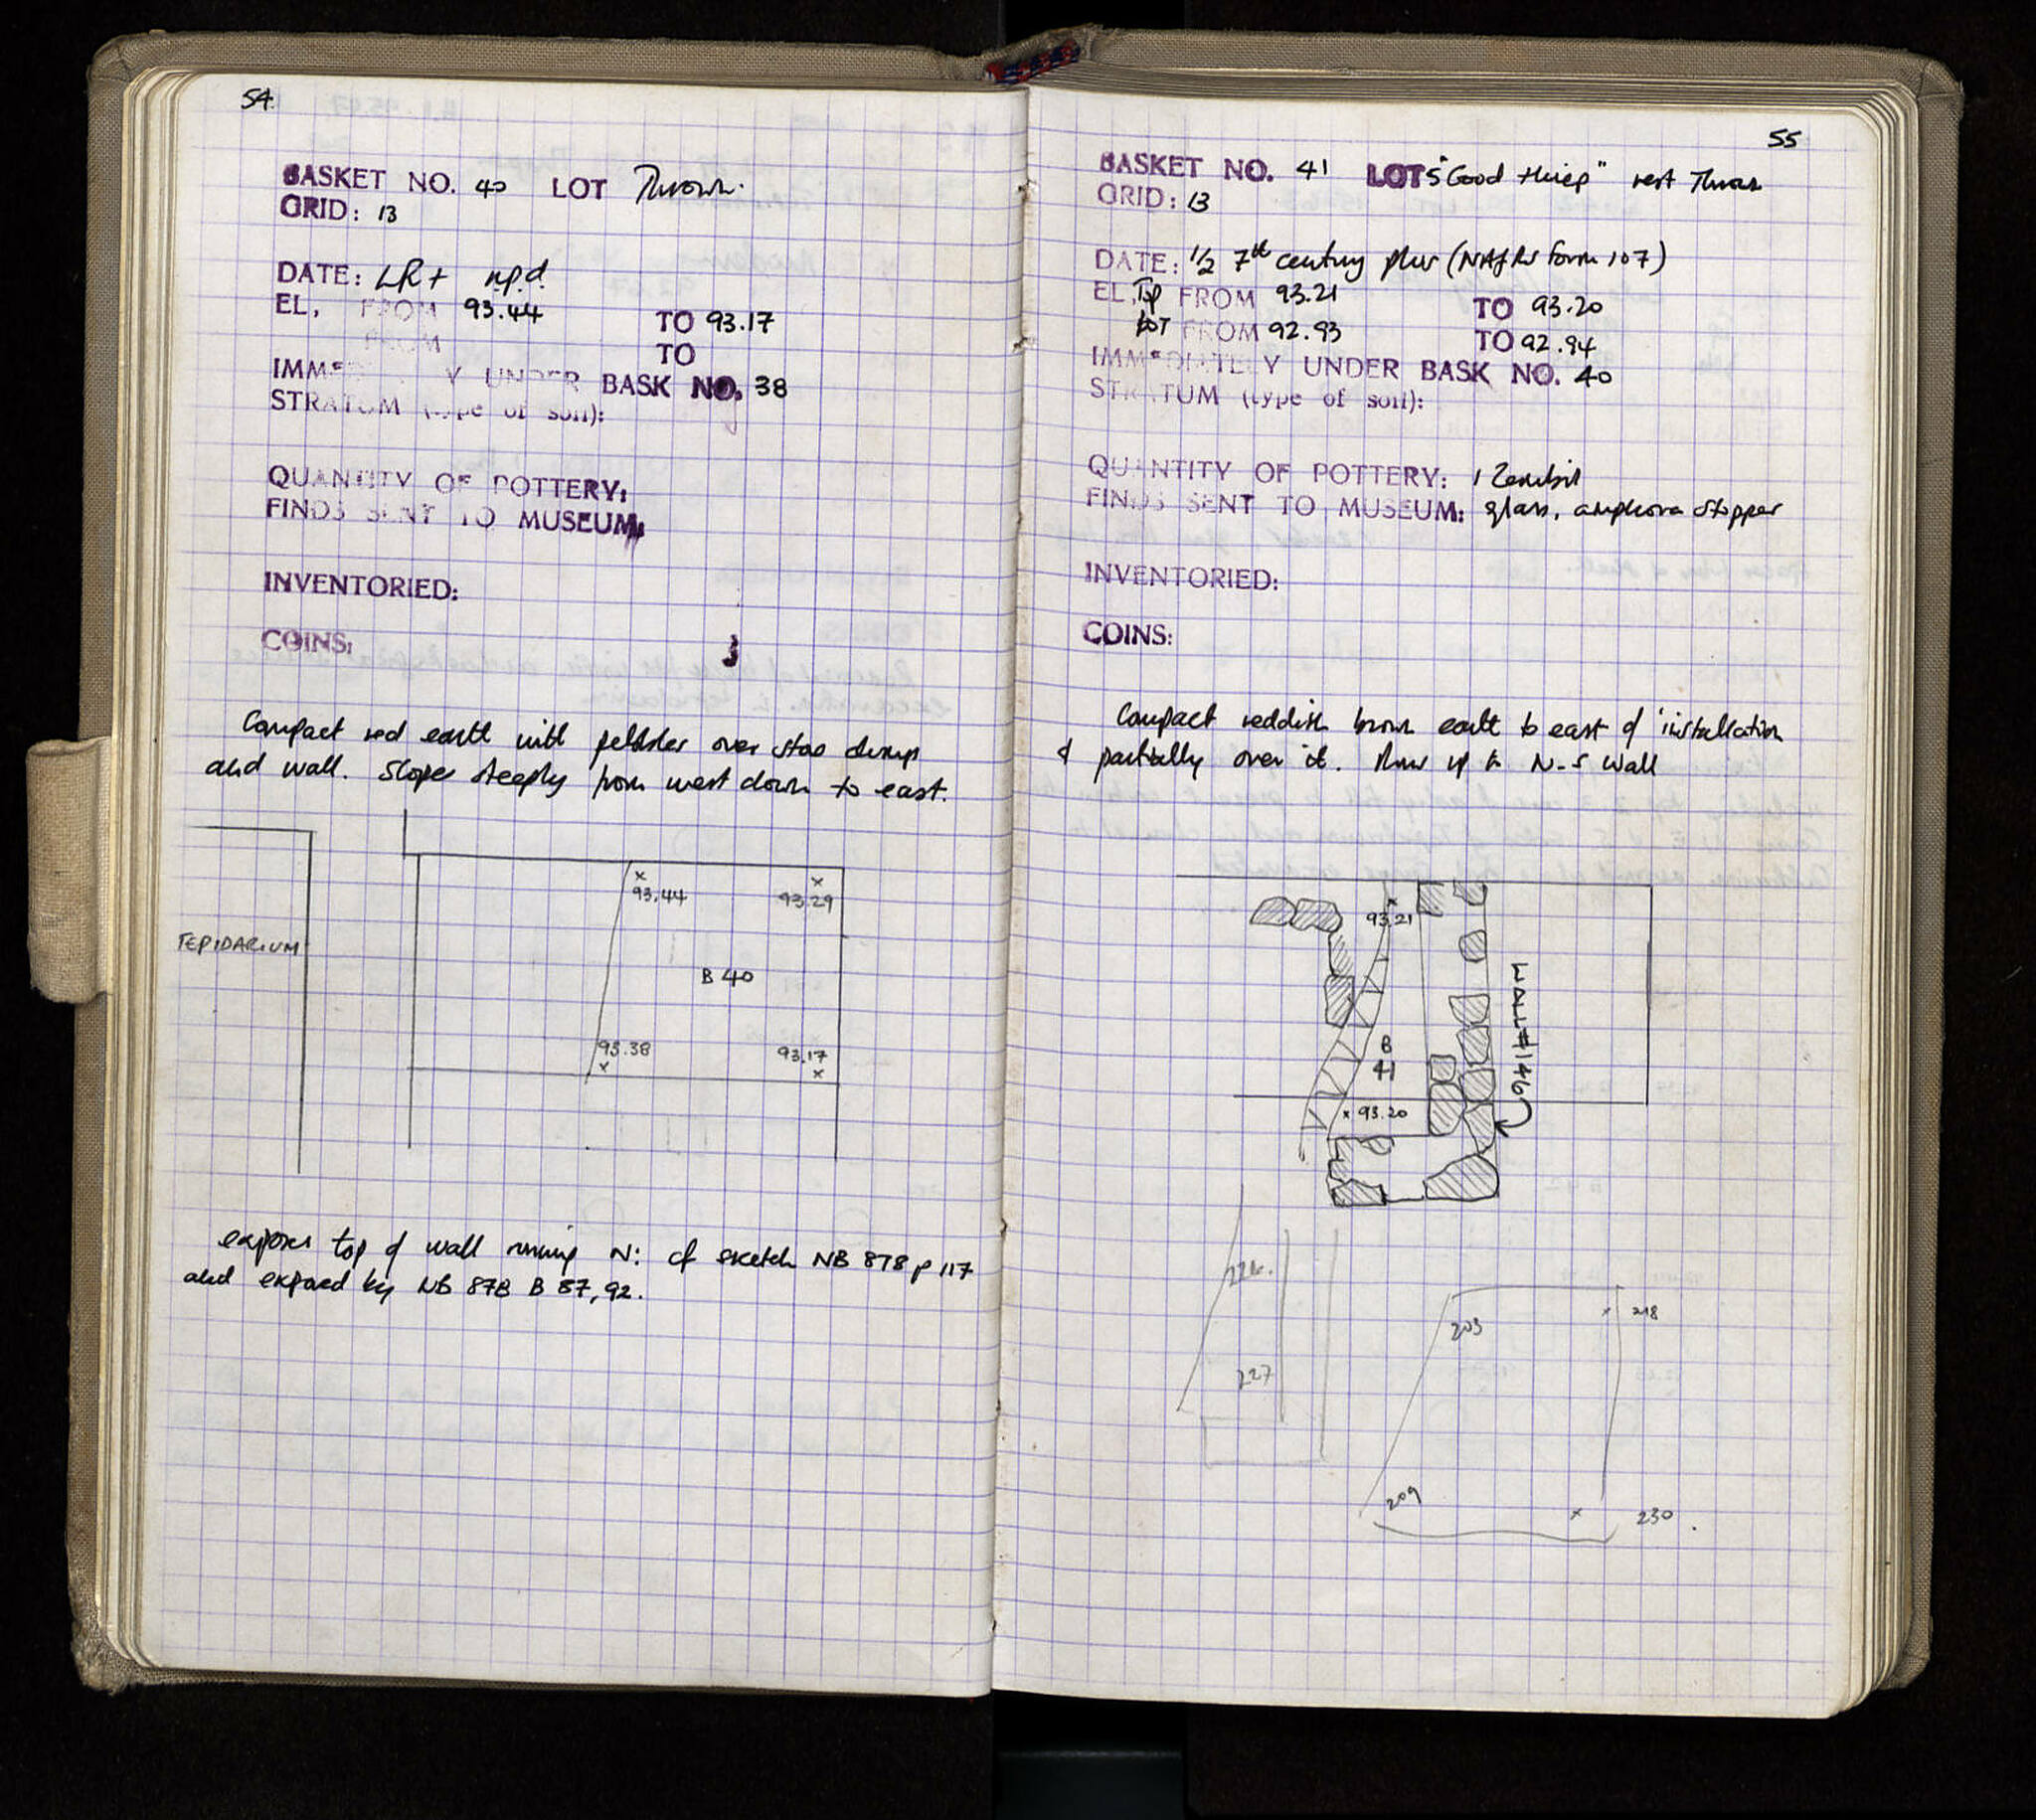 54
BASKET NO. 40 LOT Thrown.
GRID: 13
DATE: LR+ n.p.d.
EL, FROM 93.44 TO 93.17
FROM TO
IMMEDIATELY UNDER BASK NO. 38
STRATUM (type of soil):
QUANTITY OF POTTERY:
FINDS SENT TO MUSEUM:
INVENTORIED:
COINS:
Compact red earth with pebbles over stoa dump
and wall. Slopes steeply from west down to east.
TEPIDARIUM
93.44
93.29
B 40
93.38
93.17
exposes top of wall running N: cf sketch NB 878 p 117
and exposed by NB 878 B 87, 92.
55
BASKET NO. 41 LOT "Good things" rest Thrown
GRID: 13
DATE: 1/2 7th century plus (NAfRS form 107)
EL, Top FROM 93.21 TO 93.20
BOT FROM 92.93 TO 92.94
IMMEDIATELY UNDER BASK NO. 40
STRATUM (type of soil):
QUANTITY OF POTTERY: 1 Zembil
FINDS SENT TO MUSEUM: glass, amphora stopper
INVENTORIED:
COINS:
Compact reddish brown earth to east of 'installation
& partially over it. Runs up to N-S wall
93.21
WALL #146
B
41
93.20
226.
227
203
218
209
230